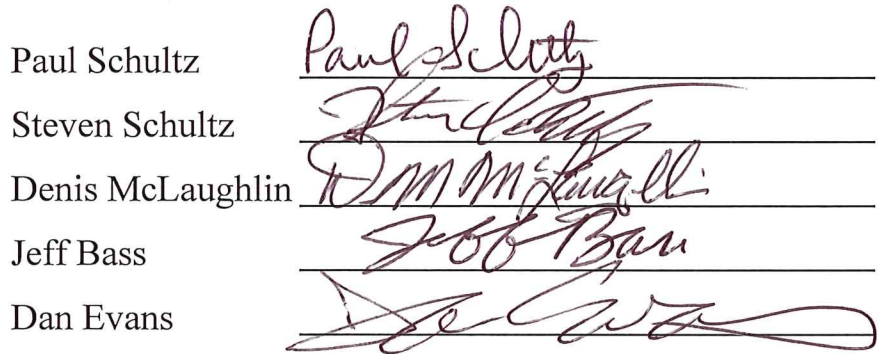 Paul Schultz Paul Schultz
Steven Schultz
Denis McLaughlin D M McLaughlin
Jeff Bass Jeff Bass
Dan Evans Dan Evans